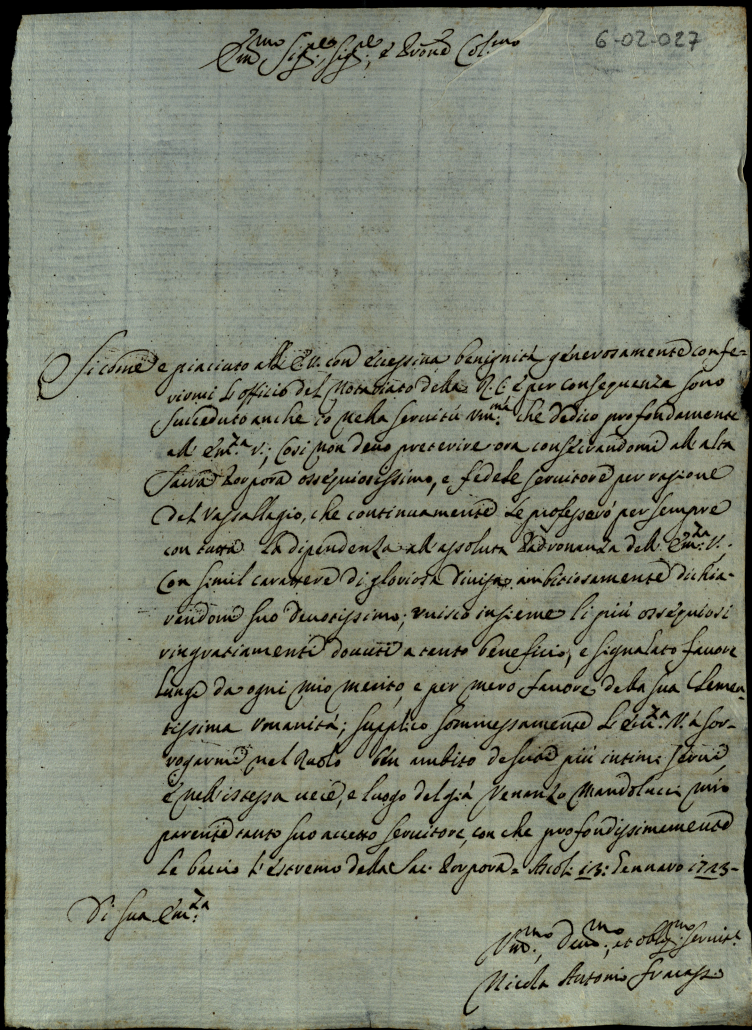 6-02-027
Em.mo Sig.re, Sig.re, e Prone Col.mo
Sicome e piaciuto all' E.V. con eccessiva benignità generosamente confe-
rirmi l'officio del Notariato della R. C. e per consequenza sono
succeduto anche io nella servitù um.ma che dedico profondamente
all' Em.za V.; Così non devo preterire ora consecrandomi all' alta
Sacra Porpora ossequiosissimo, e fedele servitore per ragione
del vassallagio, che continuamente le professerò per sempre
con tutta la dipendenza all' assoluta Padronanza dell' Em.za V.
Con simil carattere di gloriosa divisa ambitiosamente dichia-
randome suo devotissimo; unisco insieme li più ossequiosi
ringratiamenti dovuti a tanto beneficio, e signalato favore
lungi da ogni mio merito, e per mero favore della sua Clemen-
tissima umanità; supplico sommessamente l'Em.za V. à sor-
rogarme nel Ruolo ben ambito de suoi più intimi servi,
e nell' istessa vece, e luogo del già Venanzo Mandolucci mio
parente tanto suo accetto servitore, con che profondissimamente
le bacio l'estremo della Sac. Porpora = Ascoli 13: Gennaro 1723-
Di sua Em.za
Um.mo, Dev.mo, et obl.mo servit.e
Nicola Antonio Fracassi